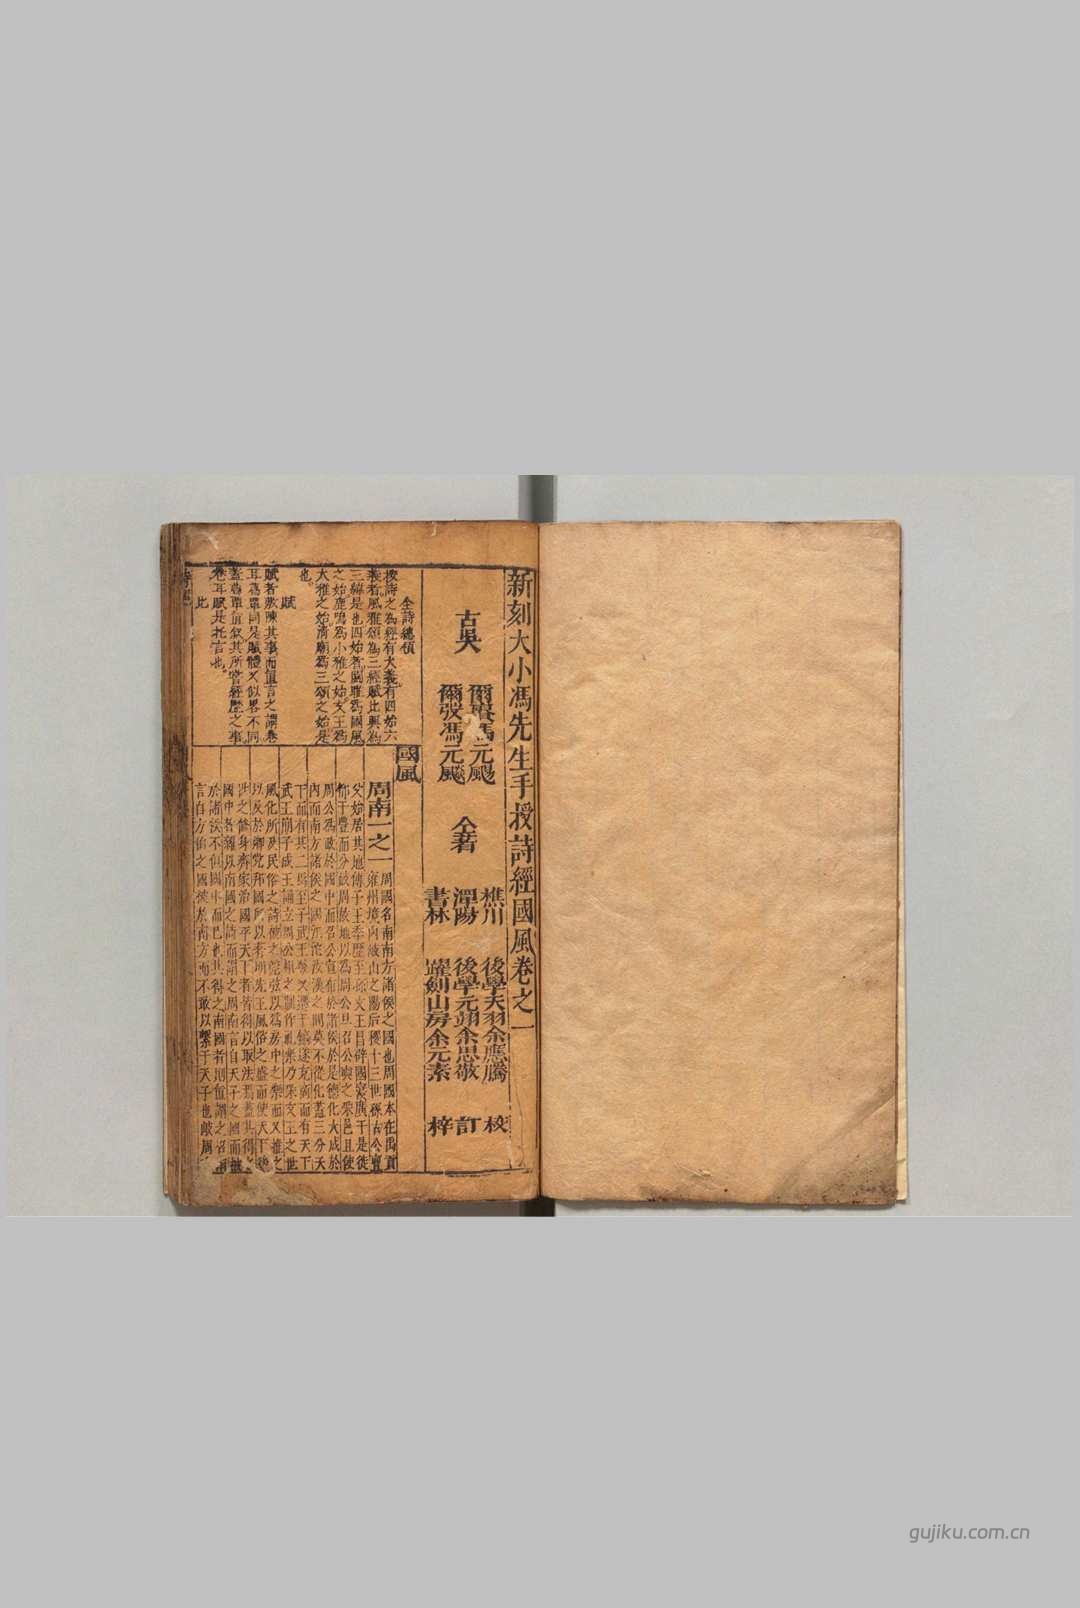 新刻大小馮先生手授詩經國風卷之一
古吳
爾賡馮元颺
爾弢馮元飇
仝著
樵川 後學天羽余應騰 校
潭陽 後學元翊余思敬 訂
書林 躍劍山房余元素 梓
全詩總領
按詩之為經有大義有四始六
義者風雅頌為三經賦比興為
三緯是也四始者關雎為國風
之始鹿鳴為小雅之始文王為
大雅之始清廟為三頌之始是
也
賦
賦者敷陳其事而直言之謂卷
耳葛覃同是賦體又似畧不同
蓋葛覃直叙其所嘗經歷之事
卷耳賦是托言也
比
國風
周南一之一
周國名南南方諸侯之國也周國本在禹貢
雍州境内岐山之陽后稷十三世孫古公亶
父始居其地傳子王季歷至孫文王昌辟國寖廣于是徙
都于豐而分岐周故地以為周公旦召公奭之采邑且使
周公為政於國中而召公宣布於諸侯於是德化大成於
内而南方諸侯之國江沱汝漢之間莫不從化蓋三分天
下而有其二焉至子武王發又遷于鎬遂克商而有天下
武王崩子成王誦立周公相之制作禮樂乃采文王之世
風化所及民俗之詩被之筦弦以為房中之樂而又推之
以及於鄉黨邦國所以著明先王風俗之盛而使天下後
世之修身齊家治國平天下者皆得以取法焉蓋其得之
國中者雜以南國之詩而謂之周南言自天子之國而被
於諸侯不但國中而已也其得之南國者則直謂之召南
言自方伯之國被於南方而不敢以繫于天子也岐周
gujiku.com.cn